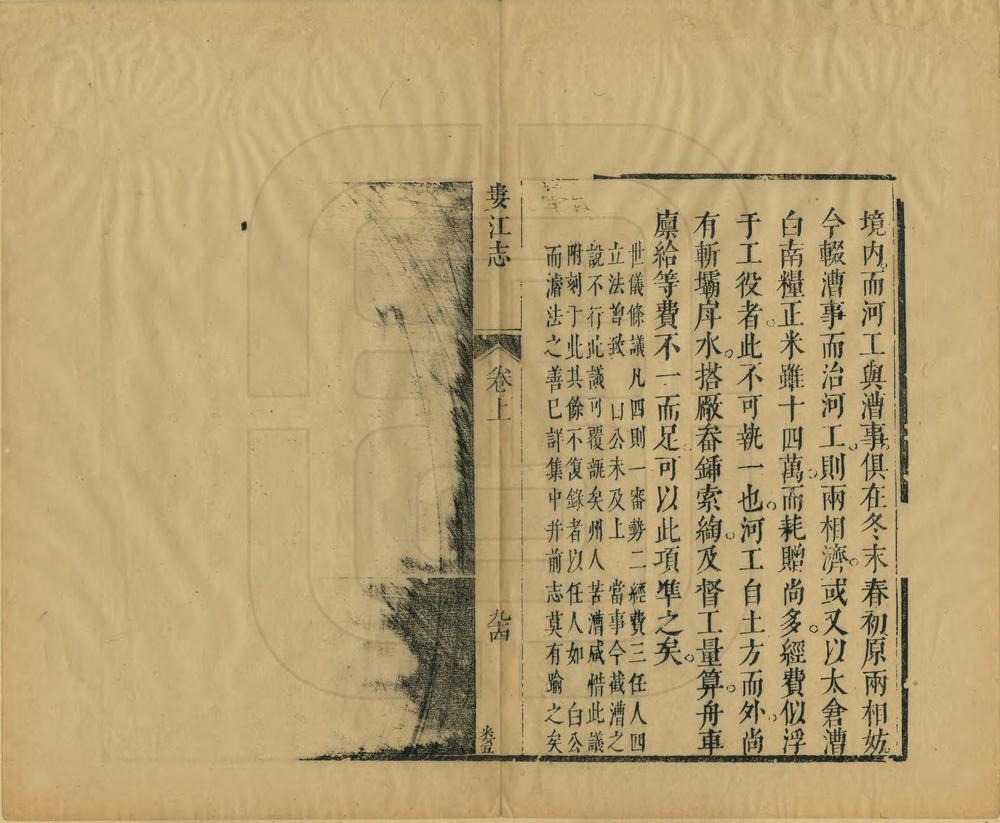 境内而河工與漕事俱在冬末春初原兩相妨
今輟漕事而治河工則兩相濟或又以太倉漕
白南糧正米雖十四萬而耗贈尚多經費似浮
于工役者此不可執一也河工自土方而外尚
有斬壩戽水搭廠畚鍤索綯及督工量算舟車
廪給等費不一而足可以此項準之矣
世儀條議凡四則一審勢二經費三任人四
立法曾致 白公未及上 當事今截漕之
說不行此議可覆誐矣州人苦漕咸惜此議
附刻于此其餘不復錄者以任人如 白公
而濬法之善已詳集中并前志莫有踰之矣
婁江志
卷上
九四